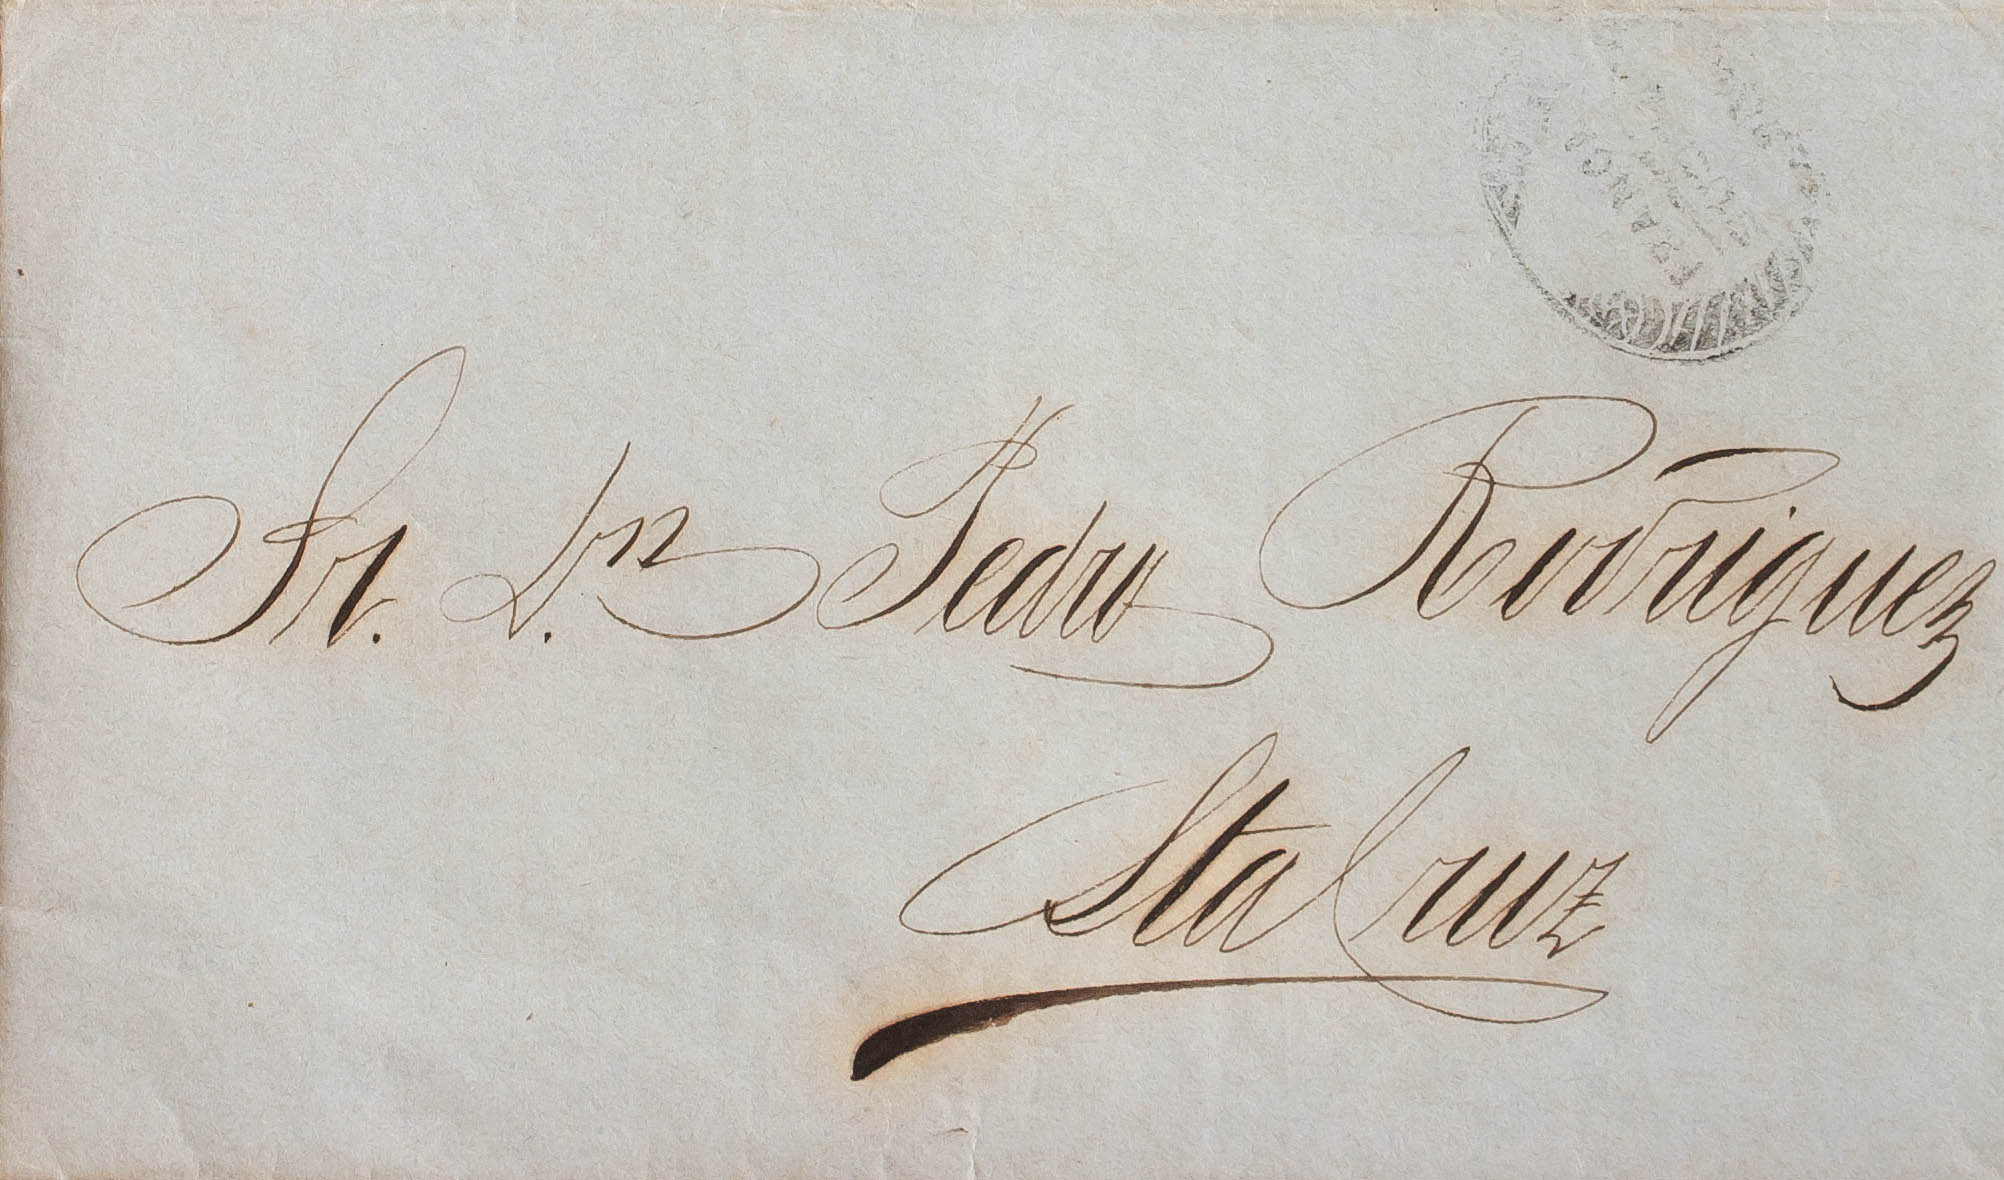 FRANCA
Sr. D.n Pedro Rodriguez
Sta Cruz